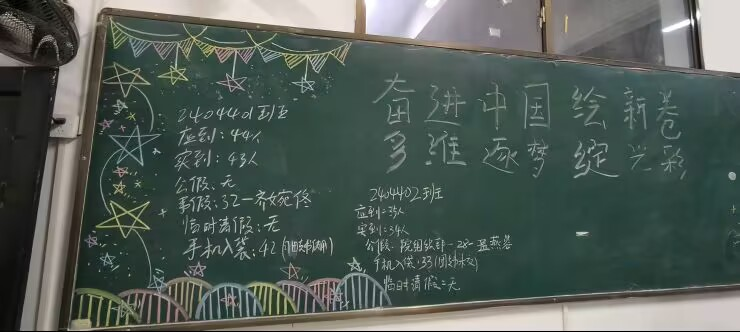 奋进中国绘新卷
多维逐梦绽光彩
2404401班
应到：44人
实到：43人
公假：无
事假：32-齐婉佟
临时请假：无
手机入袋：42
2404402班
应到：35人
实到：34人
公假：院团总部-28-孟燕
手机入袋：33
临时请假：无